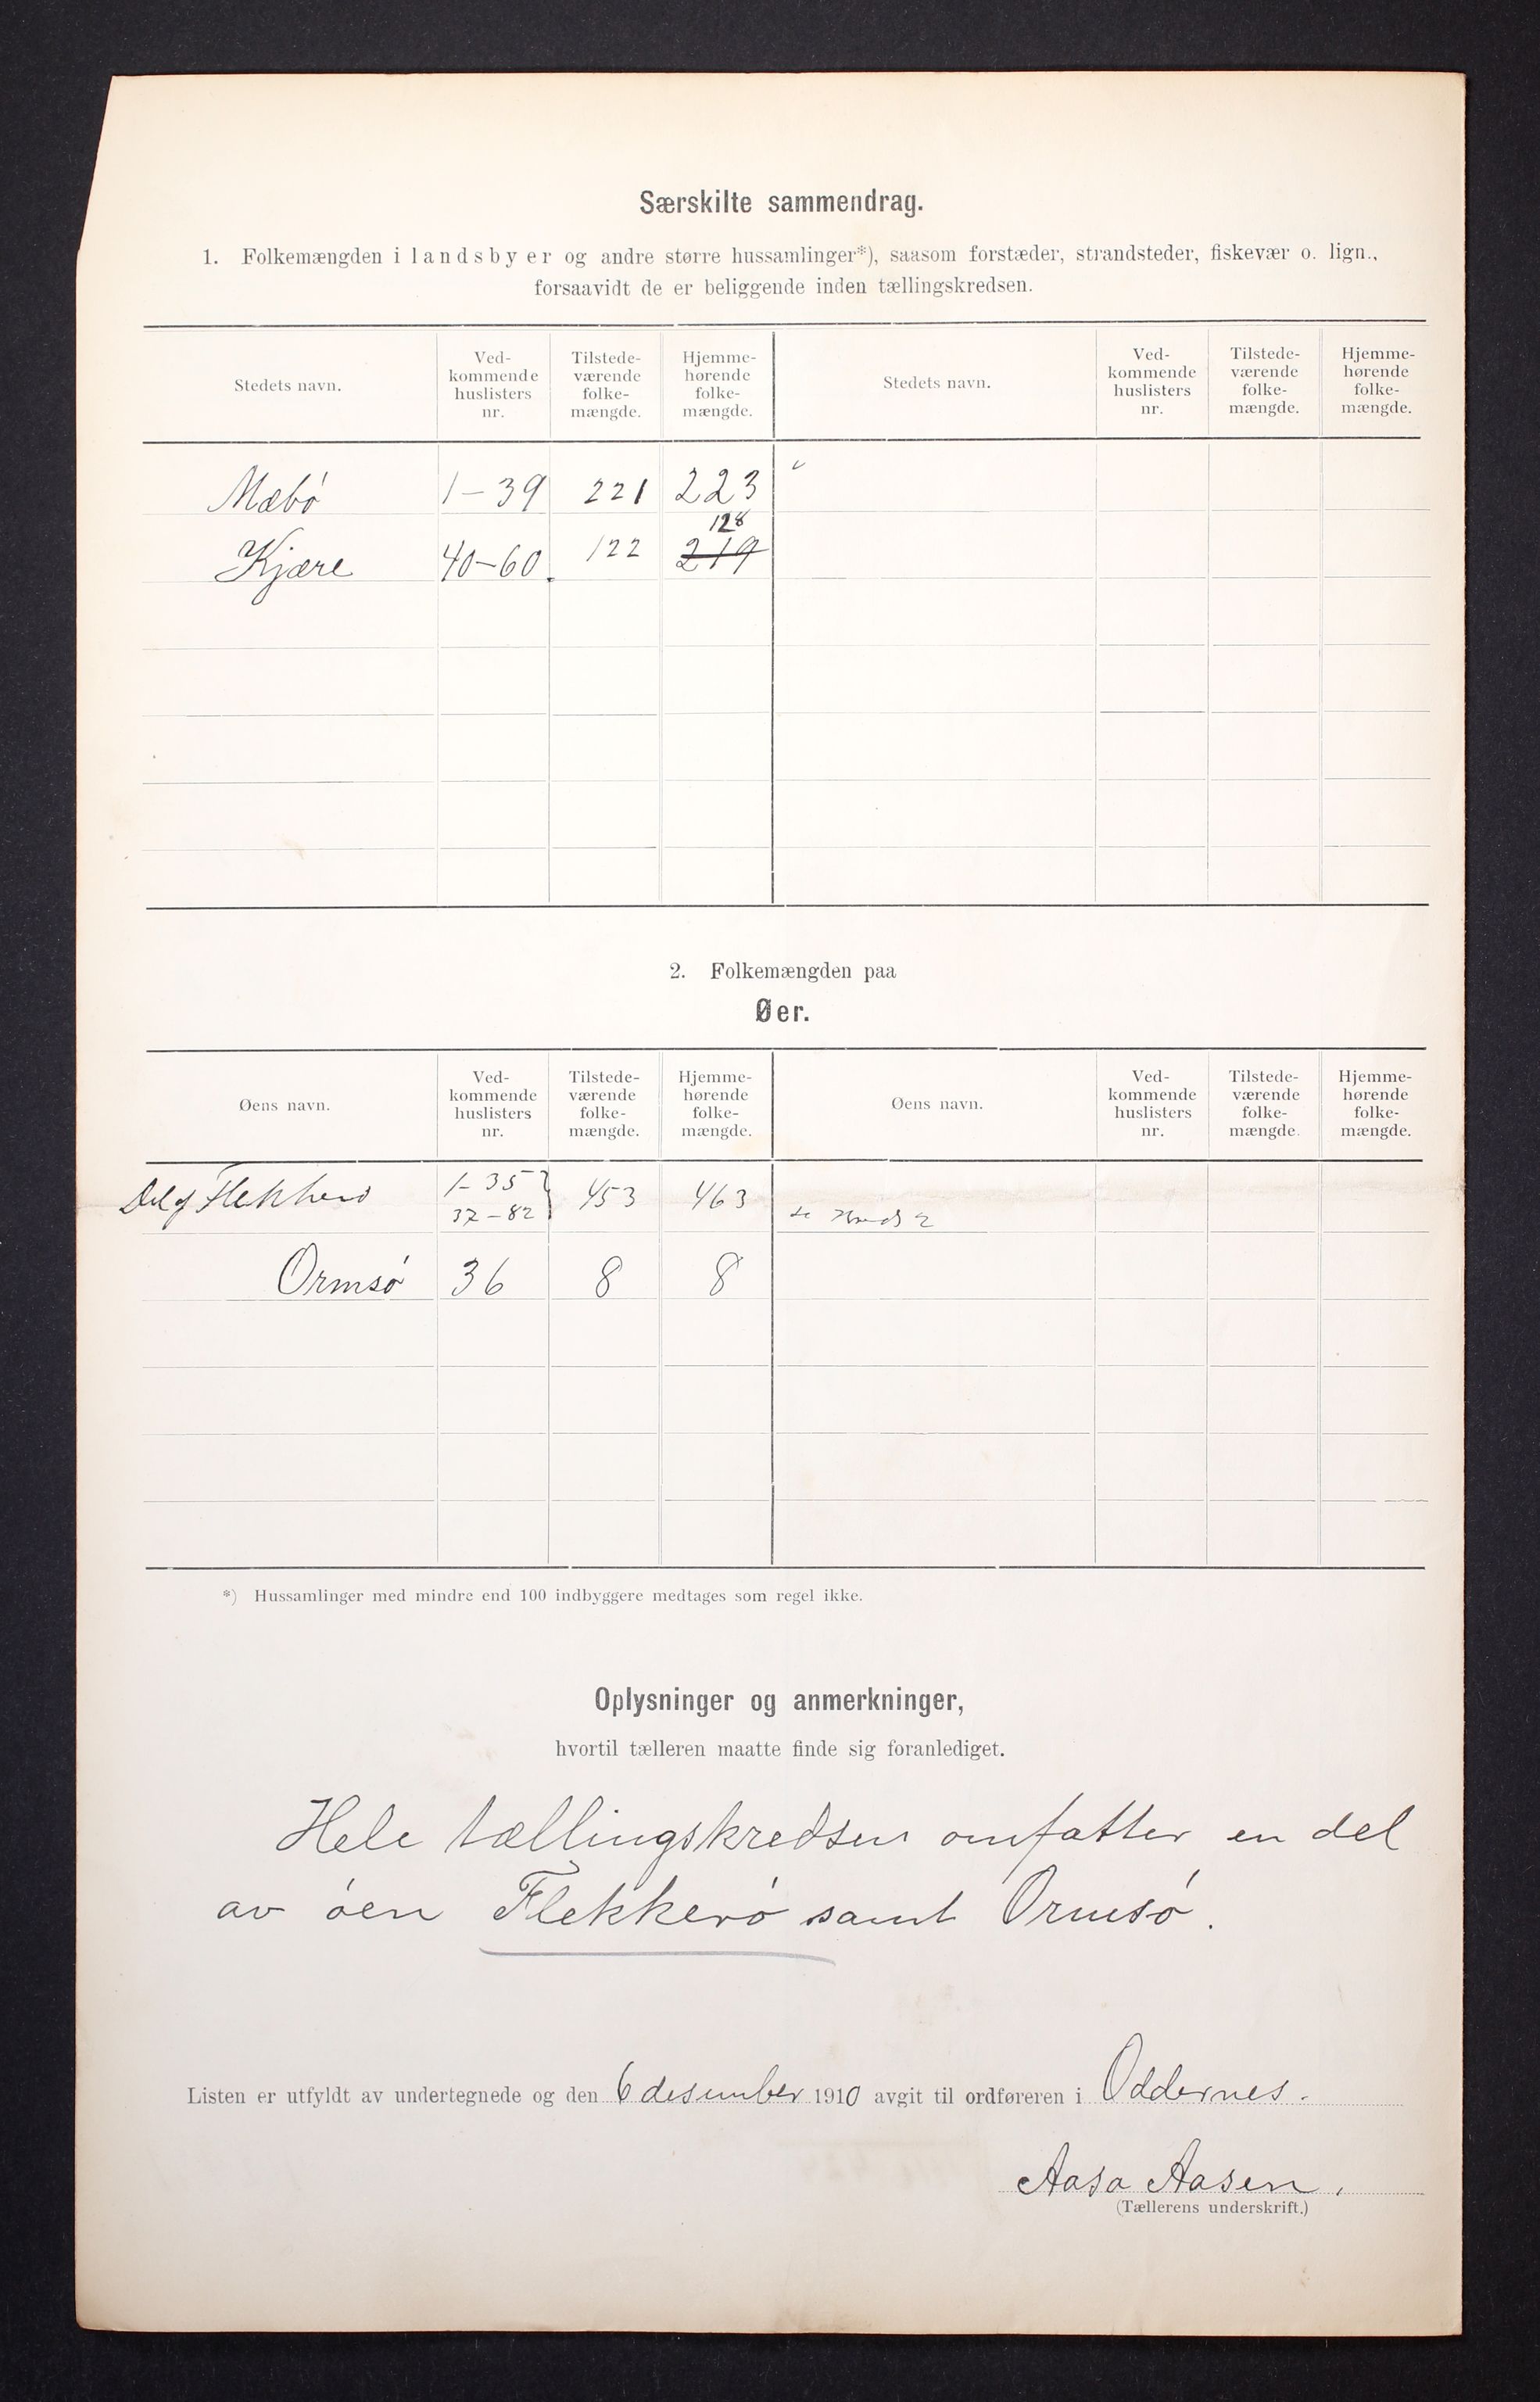 Særskilte sammendrag.
1. Folkemængden i landsbyer og andre større hussamlinger*), saasom forstæder, strandsteder, fiskevær o. lign.,
forsaavidt de er beliggende inden tællingskredsen.
Stedets navn. Ved-kommende huslisters nr. Tilstede-værende folke-mængde. Hjemme-hørende folke-mængde. Stedets navn. Ved-kommende huslisters nr. Tilstede-værende folke-mængde. Hjemme-hørende folke-mængde.
Mæbó 1-39 221 223
128
Kjære 40-60. 122 219
2. Folkemængden paa
Øer.
Øens navn. Ved-kommende huslisters nr. Tilstede-værende folke-mængde. Hjemme-hørende folke-mængde. Øens navn. Ved-kommende huslisters nr. Tilstede-værende folke-mængde. Hjemme-hørende folke-mængde.
Del af Flekkerø 1-35 453 463
37-82
Ormsó 36 8 8
*) Hussamlinger med mindre end 100 indbyggere medtages som regel ikke.
Oplysninger og anmerkninger,
hvortil tælleren maatte finde sig foranlediget.
Hele tællingskredsen omfatter en del
av óen Flekkeró samt Ormsó.
Listen er utfyldt av undertegnede og den 6 desember 1910 avgit til ordføreren i Oddernes.
Aasa Aasen.
(Tællerens underskrift.)